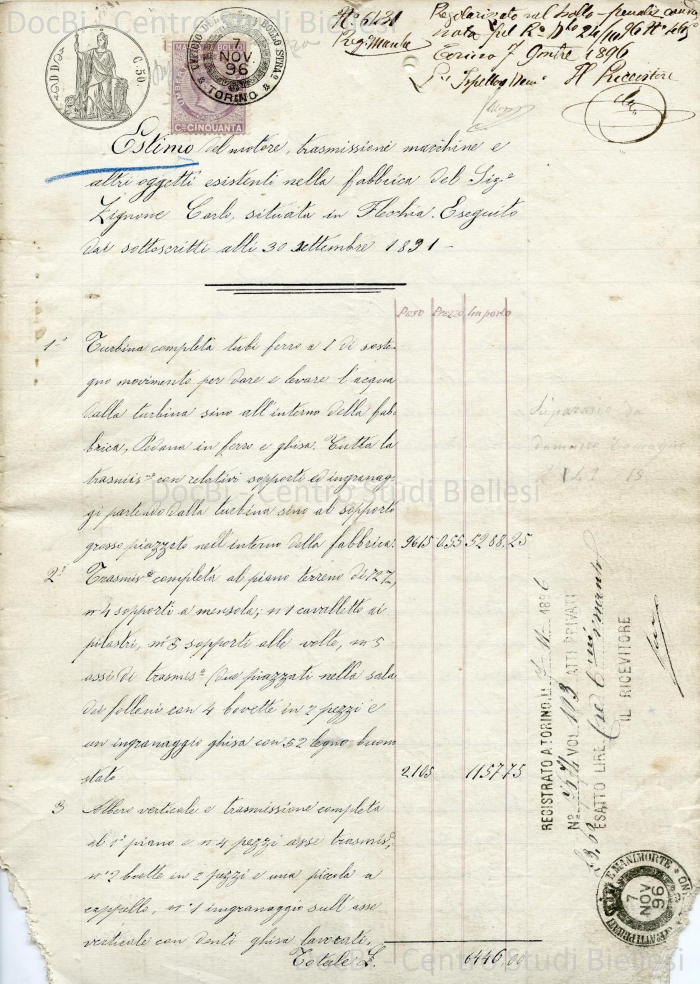 DocBi - Centro Studi Biellesi
C. 50.
UFFICIO DEL BOLLO STRAO
7
NOV
96
TORINO
MARCA DA BOLLO
Cmi CINQUANTA
No 6131
Regolarizzato nel bollo - penale
Torino 7 9mbre 1896
Il Ricevitore
Estimo del motore, trasmissioni macchine e
altri oggetti esistenti nella fabbrica del Sigr
Zignone Carlo, situata in Flechia. Eseguito
dai sottoscritti alli 30 settembre 1891 -
Peso Prezzo Importo
1o Turbina completa tubi ferro a I di soste-
gno movimento per dare e levare l'acqua
dalla turbina sino all'interno della fab-
brica, Pedana in ferro e ghisa. Tutta la
trasmisne con relativi supporti ed ingranag-
gi partendo dalla turbina sino al sopporto
grosso piazzato nell'interno della fabbrica. 9615 0.55 5288.25
2o Trasmisne completa al piano terreno di
no 4 sopporti a mensola, no 1 cavalletto ai
pilastri, no 5 sopporti alle volte, no 5
assi di trasmisne due piazzati nella sala
dei folloni con 4 boette in 2 pezzi e
un ingranaggio ghisa con 52 legno buon
stato 2105 1157.75
3 Albero verticale e trasmissione completa
al 1o piano e no 4 pezzi assi trasmisne
no 2 boette in 2 pezzi e una piccola a
cappello, no 1 ingranaggio sull'asse
verticale con denti ghisa lavorati.
Totale L. 6446 00
DocBi - Centro Studi Biellesi
REGISTRATO A TORINO, LI 1896
No VOL. 113 ATTI PRIVATI
ESATTO LIRE
IL RICEVITORE
7
NOV
96
E MANIMORTE
DocBi - Centro Studi Biellesi